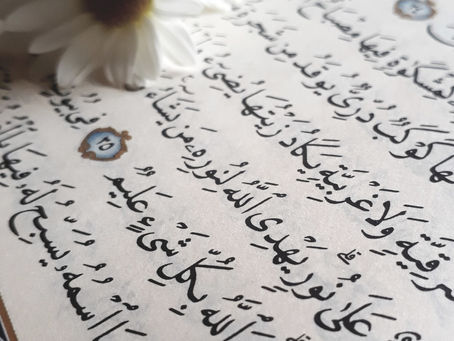 كَمِشْكَوٰةٍ فِيهَا مِصْبَاحٌ
كَوْكَبٌ دُرِّىٌّ يُوقَدُ مِن
وَلَا غَرْبِيَّةٍ يَكَادُ زَيْتُهَا يُضِىٓءُ
عَلَىٰ نُورٍ يَهْدِى ٱللَّهُ لِنُورِهِۦ مَن يَشَآءُ
ٱللَّهُ بِكُلِّ شَىْءٍ عَلِيمٌ ٣٥ فِى بُيُوتٍ
ٱسْمُهُۥ يُسَبِّحُ لَهُۥ فِيهَا